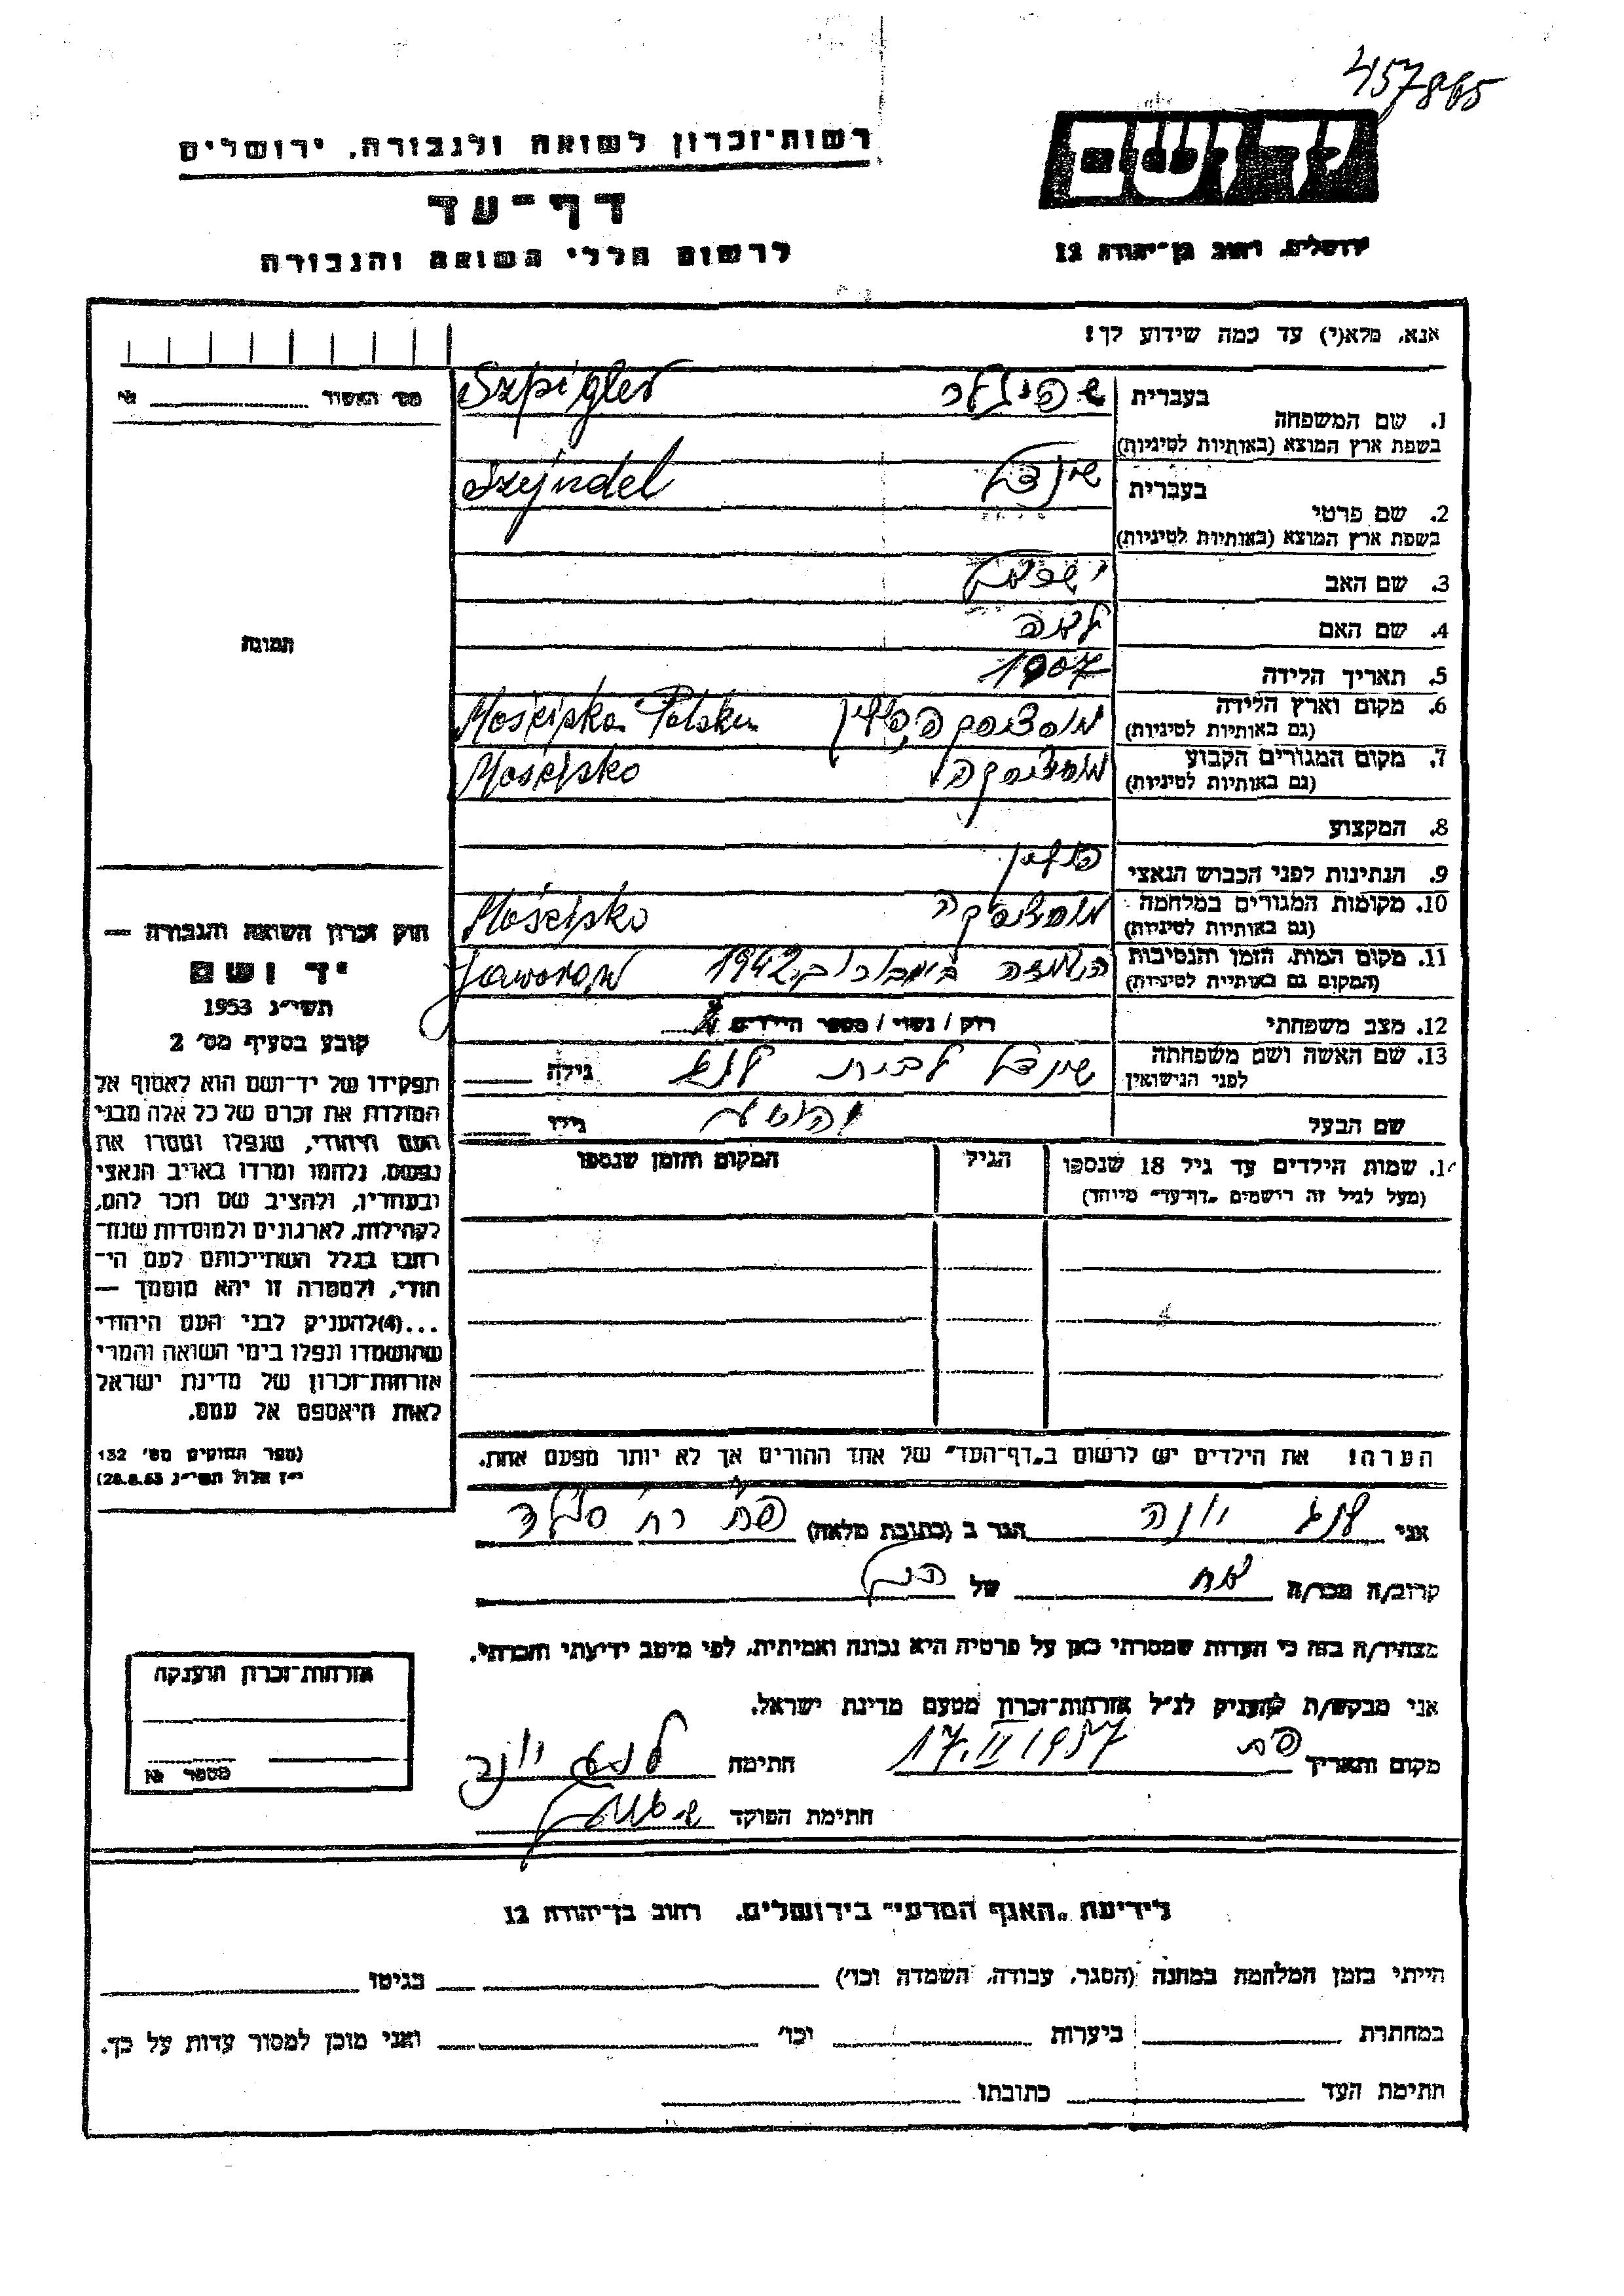 457865
רשות-זכרון לשואה ולגבורה, ירושלים
יד ושם
דף-עד
לרשום חללי השואה והגבורה
ירושלים, רחוב בן-יהודה 12
אנא, מלא(י) עד כמה שידוע לך!
מס' האשור
1. שם המשפחה
בעברית שפיגלר Szpigler
בשפת ארץ המוצא (באותיות לטיניות)
2. שם פרטי
בעברית שינדל Szejndel
בשפת ארץ המוצא (באותיות לטיניות)
3. שם האב
4. שם האם
5. תאריך הלידה 1907
6. מקום וארץ הלידה
(גם באותיות לטיניות)
7. מקום המגורים הקבוע
(גם באותיות לטיניות)
8. המקצוע
9. הנתינות לפני הכבוש הנאצי פולין
10. מקומות המגורים במלחמה
(גם באותיות לטיניות)
11. מקום המות, הזמן והנסיבות 1942 Jaworow
(המקום גם באותיות לטיניות)
12. מצב משפחתי רוק / נשוי / מספר הילדים
13. שם האשה ושם משפחתה שינדל לבית גילה
לפני הנישואין
שם הבעל גילו
שמות הילדים עד גיל 18 שנספו הגיל המקום והזמן שנספו
(מעל לגיל זה רושמים "דף-עד" מיוחד)
הערה! את הילדים יש לרשום ב"דף-העד" של אחד ההורים אך לא יותר מפעם אחת.
תמונה
חוק זכרון השואה והגבורה —
יד ושם
תשי"ג 1953
קובע בסעיף מס' 2
תפקידו של יד-ושם הוא לאסוף אל
המולדת את זכרם של כל אלה מבני
העם היהודי, שנפלו ומסרו את
נפשם, נלחמו ומרדו באויב הנאצי
ובעוזריו, ולהציב שם וזכר להם,
לקהילות, לארגונים ולמוסדות שנח־
רבו בגלל השתייכותם לעם הי־
הודי, ולמטרה זו יהא מוסמך —
...(4)להעניק לבני העם היהודי
שהושמדו ונפלו בימי השואה והמרי
אזרחות-זכרון של מדינת ישראל
לאות היאספם אל עמם.
(ספר החוקים מס' 132
י"ז אלול תשי"ג 28.8.53)
אני יונה הגר ב (כתובת מלאה) פת
קרוב/ה מכר/ה אח של הנ"ל
מצהיר/ה בזה כי העדות שמסרתי כאן על פרטיה היא נכונה ואמיתית, לפי מיטב ידיעתי והכרתי.
אני מבקש/ת להעניק לנ"ל אזרחות-זכרון מטעם מדינת ישראל.
מקום ותאריך פת 17.II 1957 חתימה יונה
חתימת הפוקד
אזרחות-זכרון הוענקה
מספר
לידיעת "האגף המדעי" בירושלים. רחוב בן-יהודה 12
הייתי בזמן המלחמה במחנה (הסגר, עבודה, השמדה וכו') בגיטו
במחתרת ביערות וכו' ואני מוכן למסור עדות על כך.
חתימת העד כתובתו